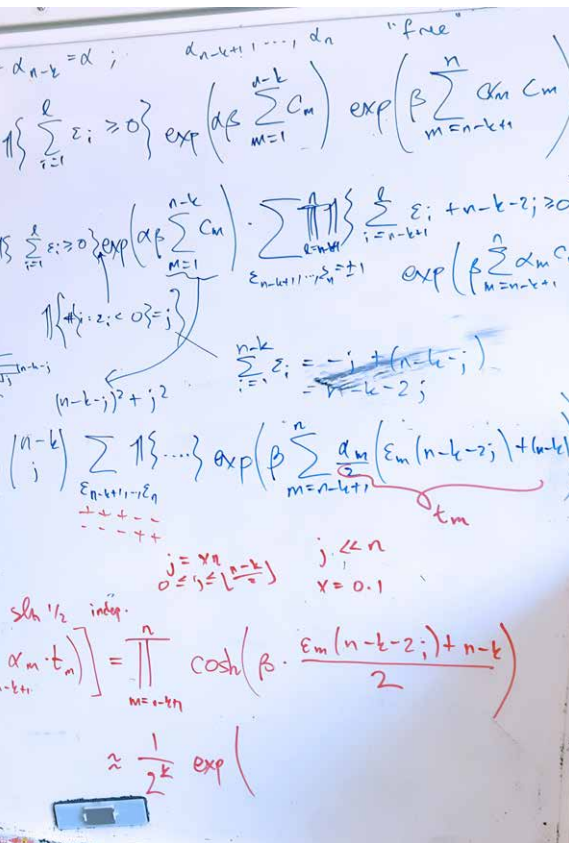 α_{n-k} = α ; α_{n-k+1}, ..., α_n "free"
𝟙{ ∑_{i=1}^{ℓ} ε_i ≥ 0 } exp( αβ ∑_{m=1}^{n-k} C_m ) exp( β ∑_{m=n-k+1}^{n} α_m C_m )
∑_{i=1}^{ℓ} ε_i ≥ 0 } exp( αβ ∑_{m=1}^{n-k} C_m ) · ∑_{ε_{n-k+1}, ..., ε_n = ±1} ∏^{n} 𝟙{ ∑_{i=n-k+1}^{ℓ} ε_i + n-k-2j ≥ 0
exp( β ∑_{m=n-k+1}^{n} α_m C
𝟙{ #{i: ε_i < 0} = j }
∑_{i=1}^{n-k} ε_i = -j + (n-k-j)
= n-k-2j
(n-k-j)² + j²
(n-k choose j) ∑_{ε_{n-k+1}, ..., ε_n} 𝟙{....} exp( β ∑_{m=n-k+1}^{n} α_m/2 ( ε_m (n-k-2j) + (n-k)
t_m
+ + + - -
- - - + +
j = xn j ≪ n
0 ≤ j ≤ ⌊(n-k)/2⌋ x = 0.1
1/2 indep.
α_m · t_m ) ] = ∏_{m=n-k+1}^{n} cosh( β · (ε_m (n-k-2j) + n-k)/2 )
≈ 1/2^k exp(